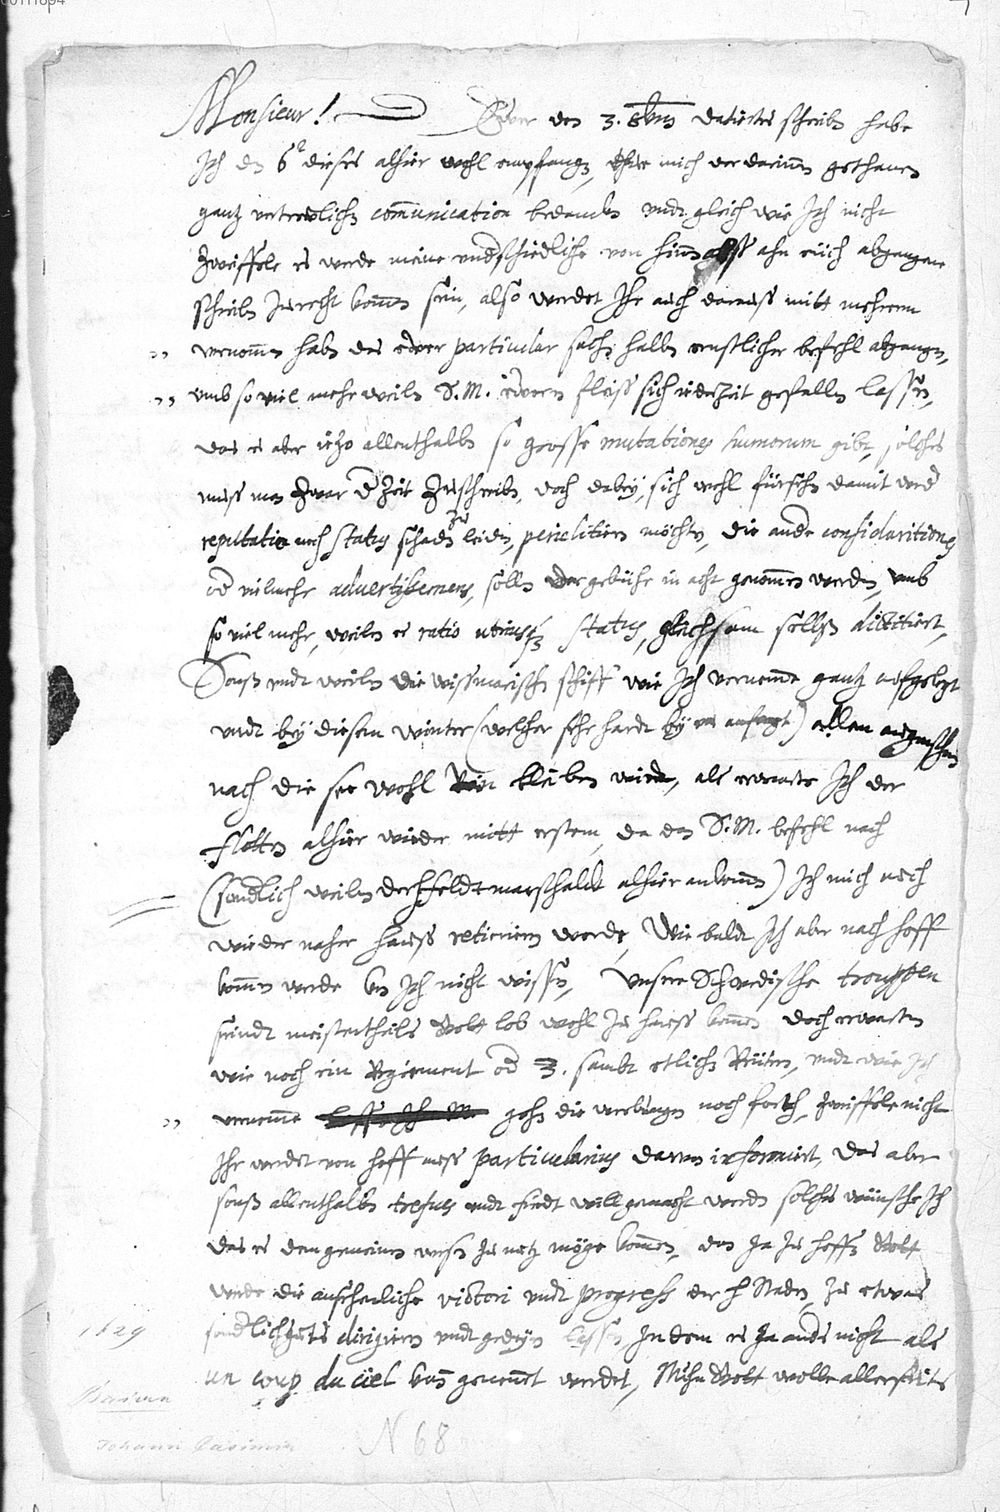 Monsieur! Ewer den 3. 8bris datiertes schreiben habe
Ich den 6 dieses alhier wohl empfangen, thue mich der darinnen gethanen
gantz vertrewlichen communication bedancken vndt gleich wie Ich nicht
zweiffele es werde meine vnderschiedliche von hinnen ahn euch abgangene
schreiben zu recht kommen sein, also werdet Ihr auch daraus mitt mehrerm
vernommen haben das ewer particular sachen halben ernstlicher befehl abgangen,
vmb so viel mehr weilen S. M. ewern fleiss sich iederzeit gefallen lassen,
das es aber ietzo allenthalben so grosse mutationes humorum gibt, solches
muss man zwar der Zeit zuschreiben, doch dabey sich wohl fürsehen damit
reputatio noch status schaden zu leiden, periclitiren möchte, die andere considerationes
oder vielmehr advertissemens, sollen der gebühr in acht genommen werden, vmb
so viel mehr, weilen es ratio utriusque status, gleichsam selbst dictitiert,
Sonst vndt weilen die wissmarische schiff wie Ich vernemme gantz aufgelegt
vndt bey diesem winter (welcher sehr hardt bey vns anfangt) allem augenschein
nach die see wohl rein bleiben wirdt, als erwarte Ich der
flotten alhier wieder mitt erstem, da dan S. M. befehl nach
(sonderlich weilen der H feldtmarschalck alhier ankommen) Ich mich auch
wieder naher hauss retiriren werde, Wie baldt Ich aber nach hoff
kommen werde kan Ich nicht wissen, Vnsere Schwedische trouppen
seindt meistentheils Gott lob wohl zu hauss kommen doch erwarten
wir noch ein Regiment oder 3. sambt etlichen Reütern, vndt wie Ich
vernemme gehen die werbungen noch forth, zweiffele nicht
Ihr werdet von hoff auss particularius davon informirt, das aber
sonst allenthalben trefues vndt friedt will gemacht werden solches wünsche Ich
das es dem gemeinen wesen zu nutz möge kommen, dan Ja zu hoffen Gott
werde die ansehenliche victori vndt progress der H Staden zu etwas
sonderlich guts dirigiren vndt gedeyen lassen, Indem es Ja anders nicht als
un coup du ciel kan genennet werden, Mihr Gott wolle allerseits
1629
Johann Casimir
N 68